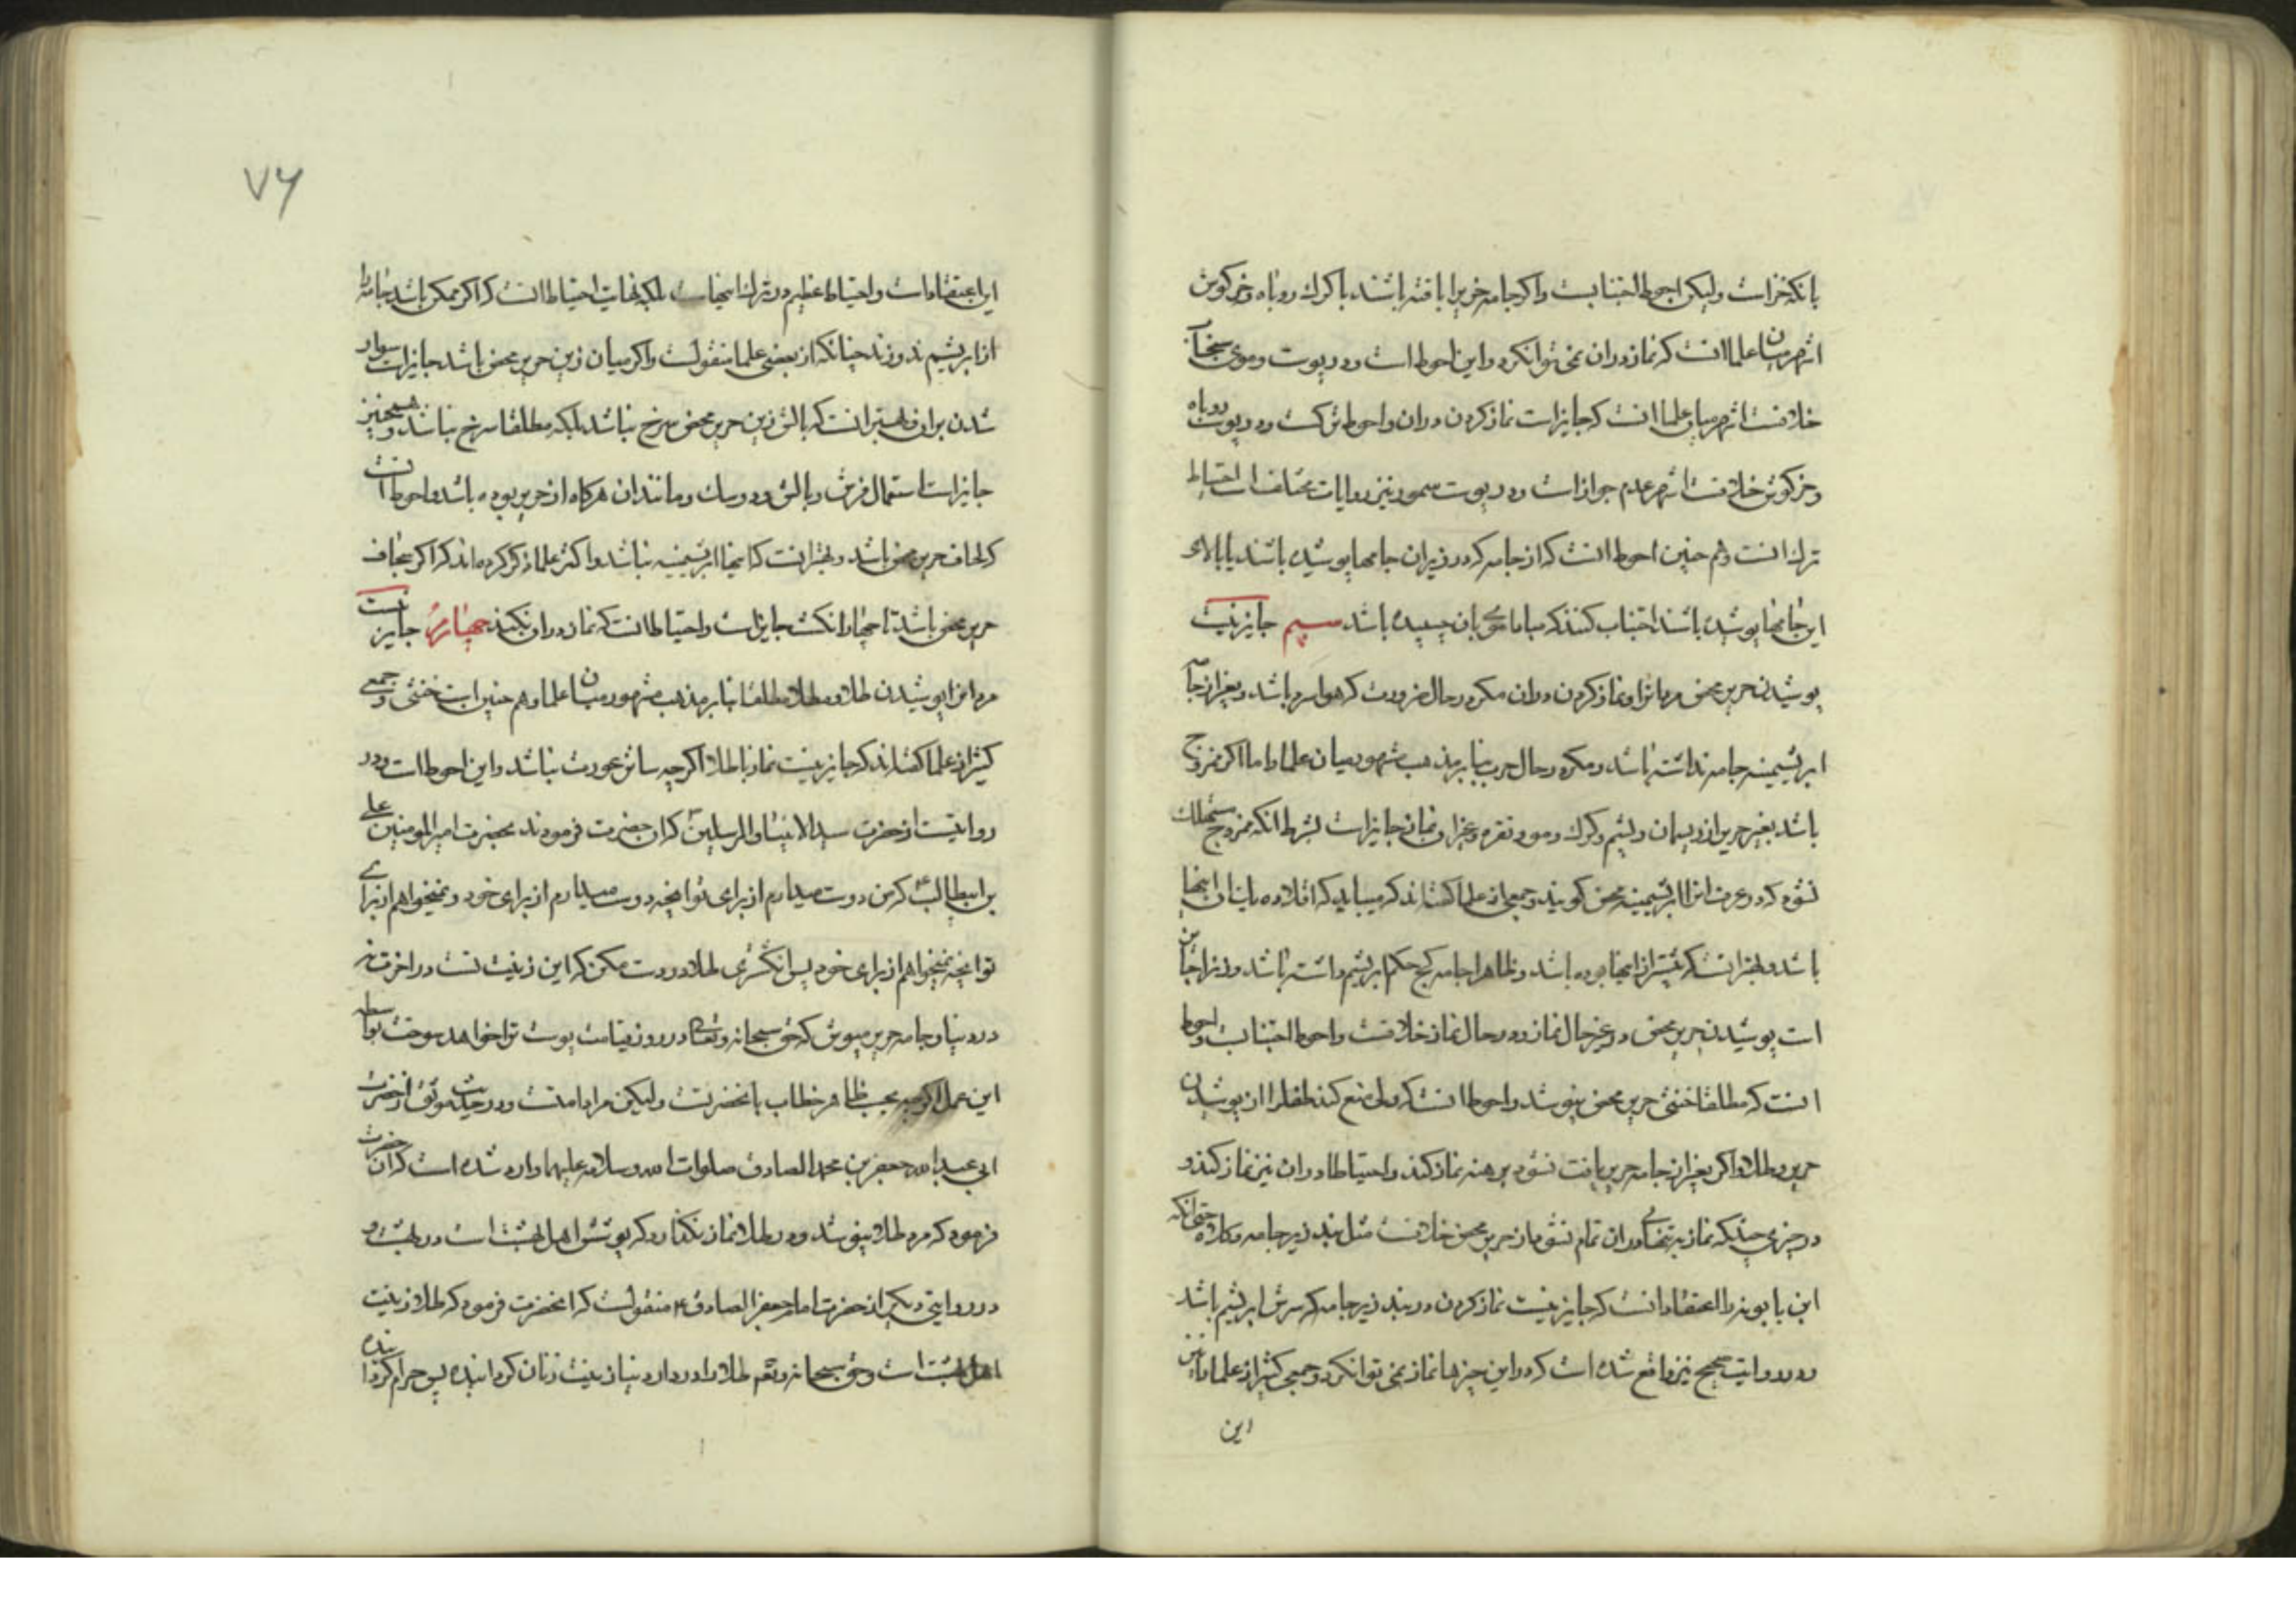 بانکه خز است ولیکن احوط اجتناب است و اکر جامه خز را بافته باشند با کرک روباه و خرکوش
اشهر میان علما انست که نماز در ان نمی توان کرد و این احوط است و در پوست و موی سنجاب
خلافست اشهر میان علما انست که جایز است نماز کردن در ان و احوط ترکست و در پوست روباه
و خرکوش خلافست اشهر عدم جواز است و در پوست سمور نیز روایات مختلف است احتیاط
ترک انست و هم چنین احوط انست که از جامه که در زیر ان جامها پوشیده باشند یا بالای
این جامها پوشیده باشند اجتناب کنند که مبادا موی بان چسبیده باشد سیم جایز نیست
پوشیدن حریر محض مردانرا و نماز کردن در ان مکر در حال ضرورت که هوا سرد باشد و بغیر از جامه
ابریشمینه جامه نداشته باشد و مکر در حال حرب بنابر مذهب مشهور میان علما و اما اکر ممزوج
باشد بغیر حریر از ریسمان و پشم و کرک و مو و نقره و غیر ان نماز جایز است بشرط انکه ممزوج مستهلک
نشود که در عرف انرا ابریشمینه محض کویند و جمعی از علما کفته‌اند که میباید که اقلا ده یک ان اینها
باشد و بهتر انست که بیشتر از اینها بوده باشد و ظاهرا جامه کج حکم ابریشم داشته باشد و زنانرا جایز
است پوشیدن حریر محض در غیر حال نماز و در حال نماز خلافست و احوط اجتناب است و احوط
انست که مطلقا خنثی حریر محض نپوشد و احوط انست که ولی منع کند طفل را از پوشیدن
حریر و طلا و اکر بغیر از جامه حریر یافت نشود برهنه نماز کند و احتیاطا در ان نیز نماز کند و
در چیزی چند که نماز به تنهائی در ان تمام نشود از حریر محض خلافست مثل بند زیر جامه و کلاه حتی انکه
ابن بابویه را اعتقاد انست که جایز نیست نماز کردن در بند زیر جامه که سرش ابریشم باشد
و در روایت صحیح نیز واقع شده است که در این چیزها نماز نمی توان کرد و جمعی کثیر از علما را نیز
این
۷۶
این اعتقاد است و احتیاط عظیم در ترک اینهاست بلکه نهایت احتیاط انست که اکر ممکن باشد جامه را
از ابریشم ندوزند چنانکه از بعضی علما منقولست و اکر میان زین حریر محض باشد جایز است سوار
شدن بران و بهتر انست که بالش زین حریر محض سرخ نباشد بلکه مطلقا سرخ نباشد و همچنین
جایز است استعمال فرش و بالش و دوسک و مانند ان هرکاه از حریر بوده باشد و احوط انست
که لحاف حریر محض نباشد و بهتر انست که اینها ابریشمینه نباشد و اکثر علما ذکر کرده‌اند که اکر سجاف
حریر محض باشد تا چهار انکشت جایز است و احتیاط انست که نماز در او نکنند چهارم جایز نیست
مردانرا پوشیدن طلا و مطلا مطلقا بنابر مذهب مشهور میان علما و هم چنین است خنثی و جمعی
کثیر از علما کفته‌اند که جایز نیست نماز با طلا اکر چه ساتر عورت نباشد و این احوط است و در
روایتست از حضرت سید الانبیا و المرسلین ص که ان حضرت فرمودند بحضرت امیر المومنین علی
بن ابیطالب ع که من دوست میدارم از برای تو انچه دوست میدارم از برای خود و نمیخواهم از برای
تو انچه نمیخواهم از برای خود پس انکشتری طلا در دست مکن که این زینت تست در اخرت نه
در دنیا و جامه حریر مپوش که حق سبحانه و تعالی در روز قیامت پوست ترا خواهد سوخت بواسطه
این عمل اکر چه بحسب ظاهر خطاب بانحضرتست ولیکن مراد امتست و در حدیث موثق از حضرت
ابی عبدالله جعفر بن محمد الصادق صلوات الله و سلامه علیهما وارد شده است که ان حضرت
فرمود که مرد طلا نپوشد و در طلا نماز نکذارد که پوشش اهل بهشت است در بهشت و
در روایتی دیکر از حضرت امام جعفر الصادق ع منقولست که انحضرت فرمود که طلا زینت
اهل بهشت است و حق سبحانه و تعم طلا را در دار دنیا زینت زنان کردانیده پس حرام کردانیده